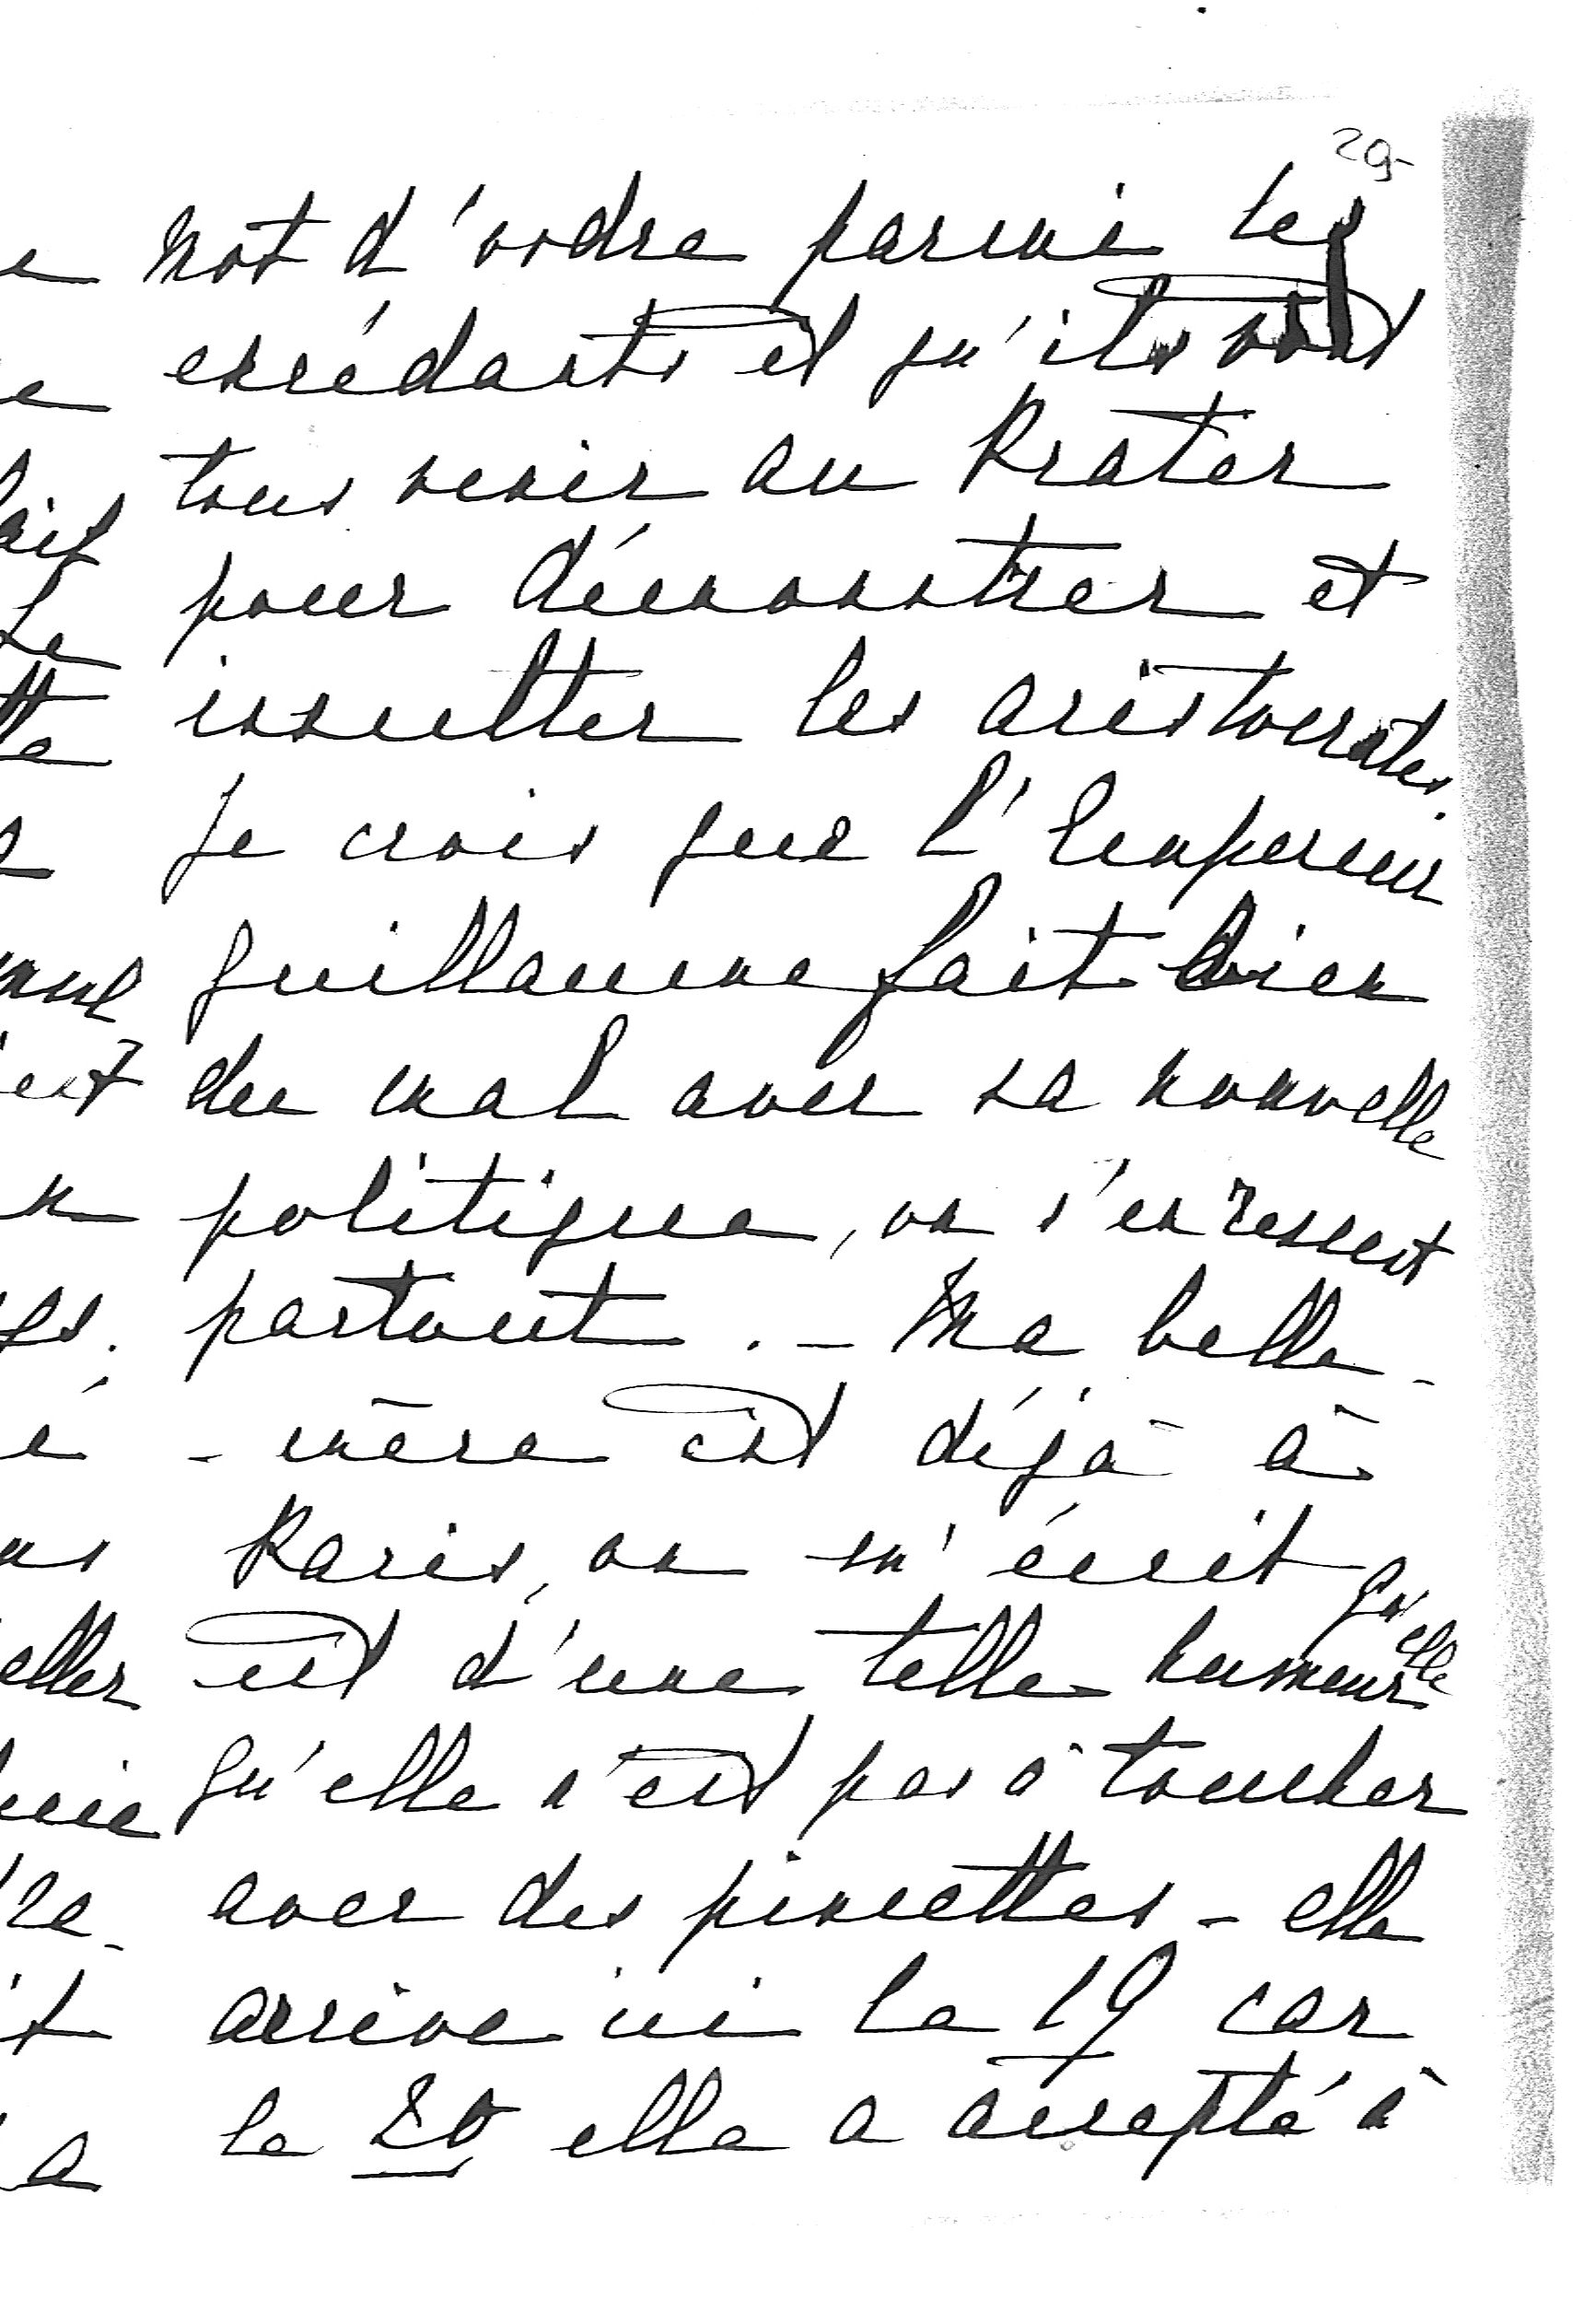 29-
mot d'ordre parmi les
excédants et qu'ils vont
tous venir au Prater
pour démonstrer et
insulter les aristocrates.
Je crois que l'Empereur
Guillaume fait bien
du mal avec sa nouvelle
politique, on s'en ressent
partout. - Ma belle-
-mère est déjà à
Paris, on m'écrit qu'elle
est d'une telle humeur
qu'elle n'est pas à toucher
avec des pincettes - elle
arrive ici le 19 car
le 20 elle a accepté à